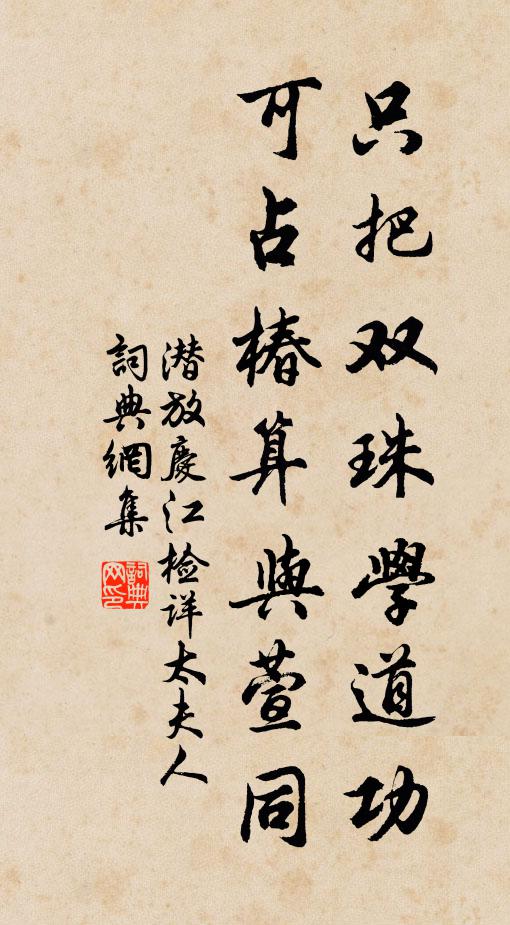 只把双珠學道功
可占椿算與萱同
潜放慶江检详太夫人
詞典網集
詞典
网印